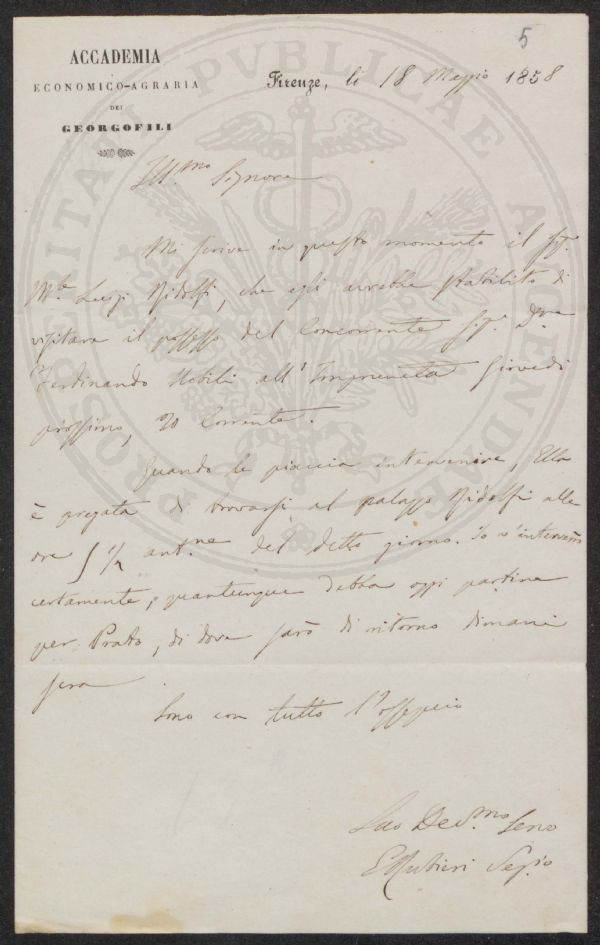 5
ACCADEMIA
ECONOMICO-AGRARIA
DEI
GEORGOFILI
Firenze, li 18 Maggio 1858
PROSPERITATI PVBLICAE AVGENDAE
Ill.mo Signore
Mi scrive in questo momento il Sig.
M.se Luigi Ridolfi, che egli avrebbe stabilito di
visitare il possesso del Concorrente Sig. D.re
Ferdinando Nobili all'Impruneta Giovedì
prossimo, 20 Corrente.
Quando le piaccia intervenire, Ella
è pregata di trovarsi al palazzo Ridolfi alle
ore 5 1/2 ant.ne del detto giorno. Io v'interverrò
certamente, quantunque debba oggi partire
per Prato, di dove sarò di ritorno dimani
sera.
Sono con tutto l'ossequio
Suo Dev.mo Servo
Rubieri Seg.rio